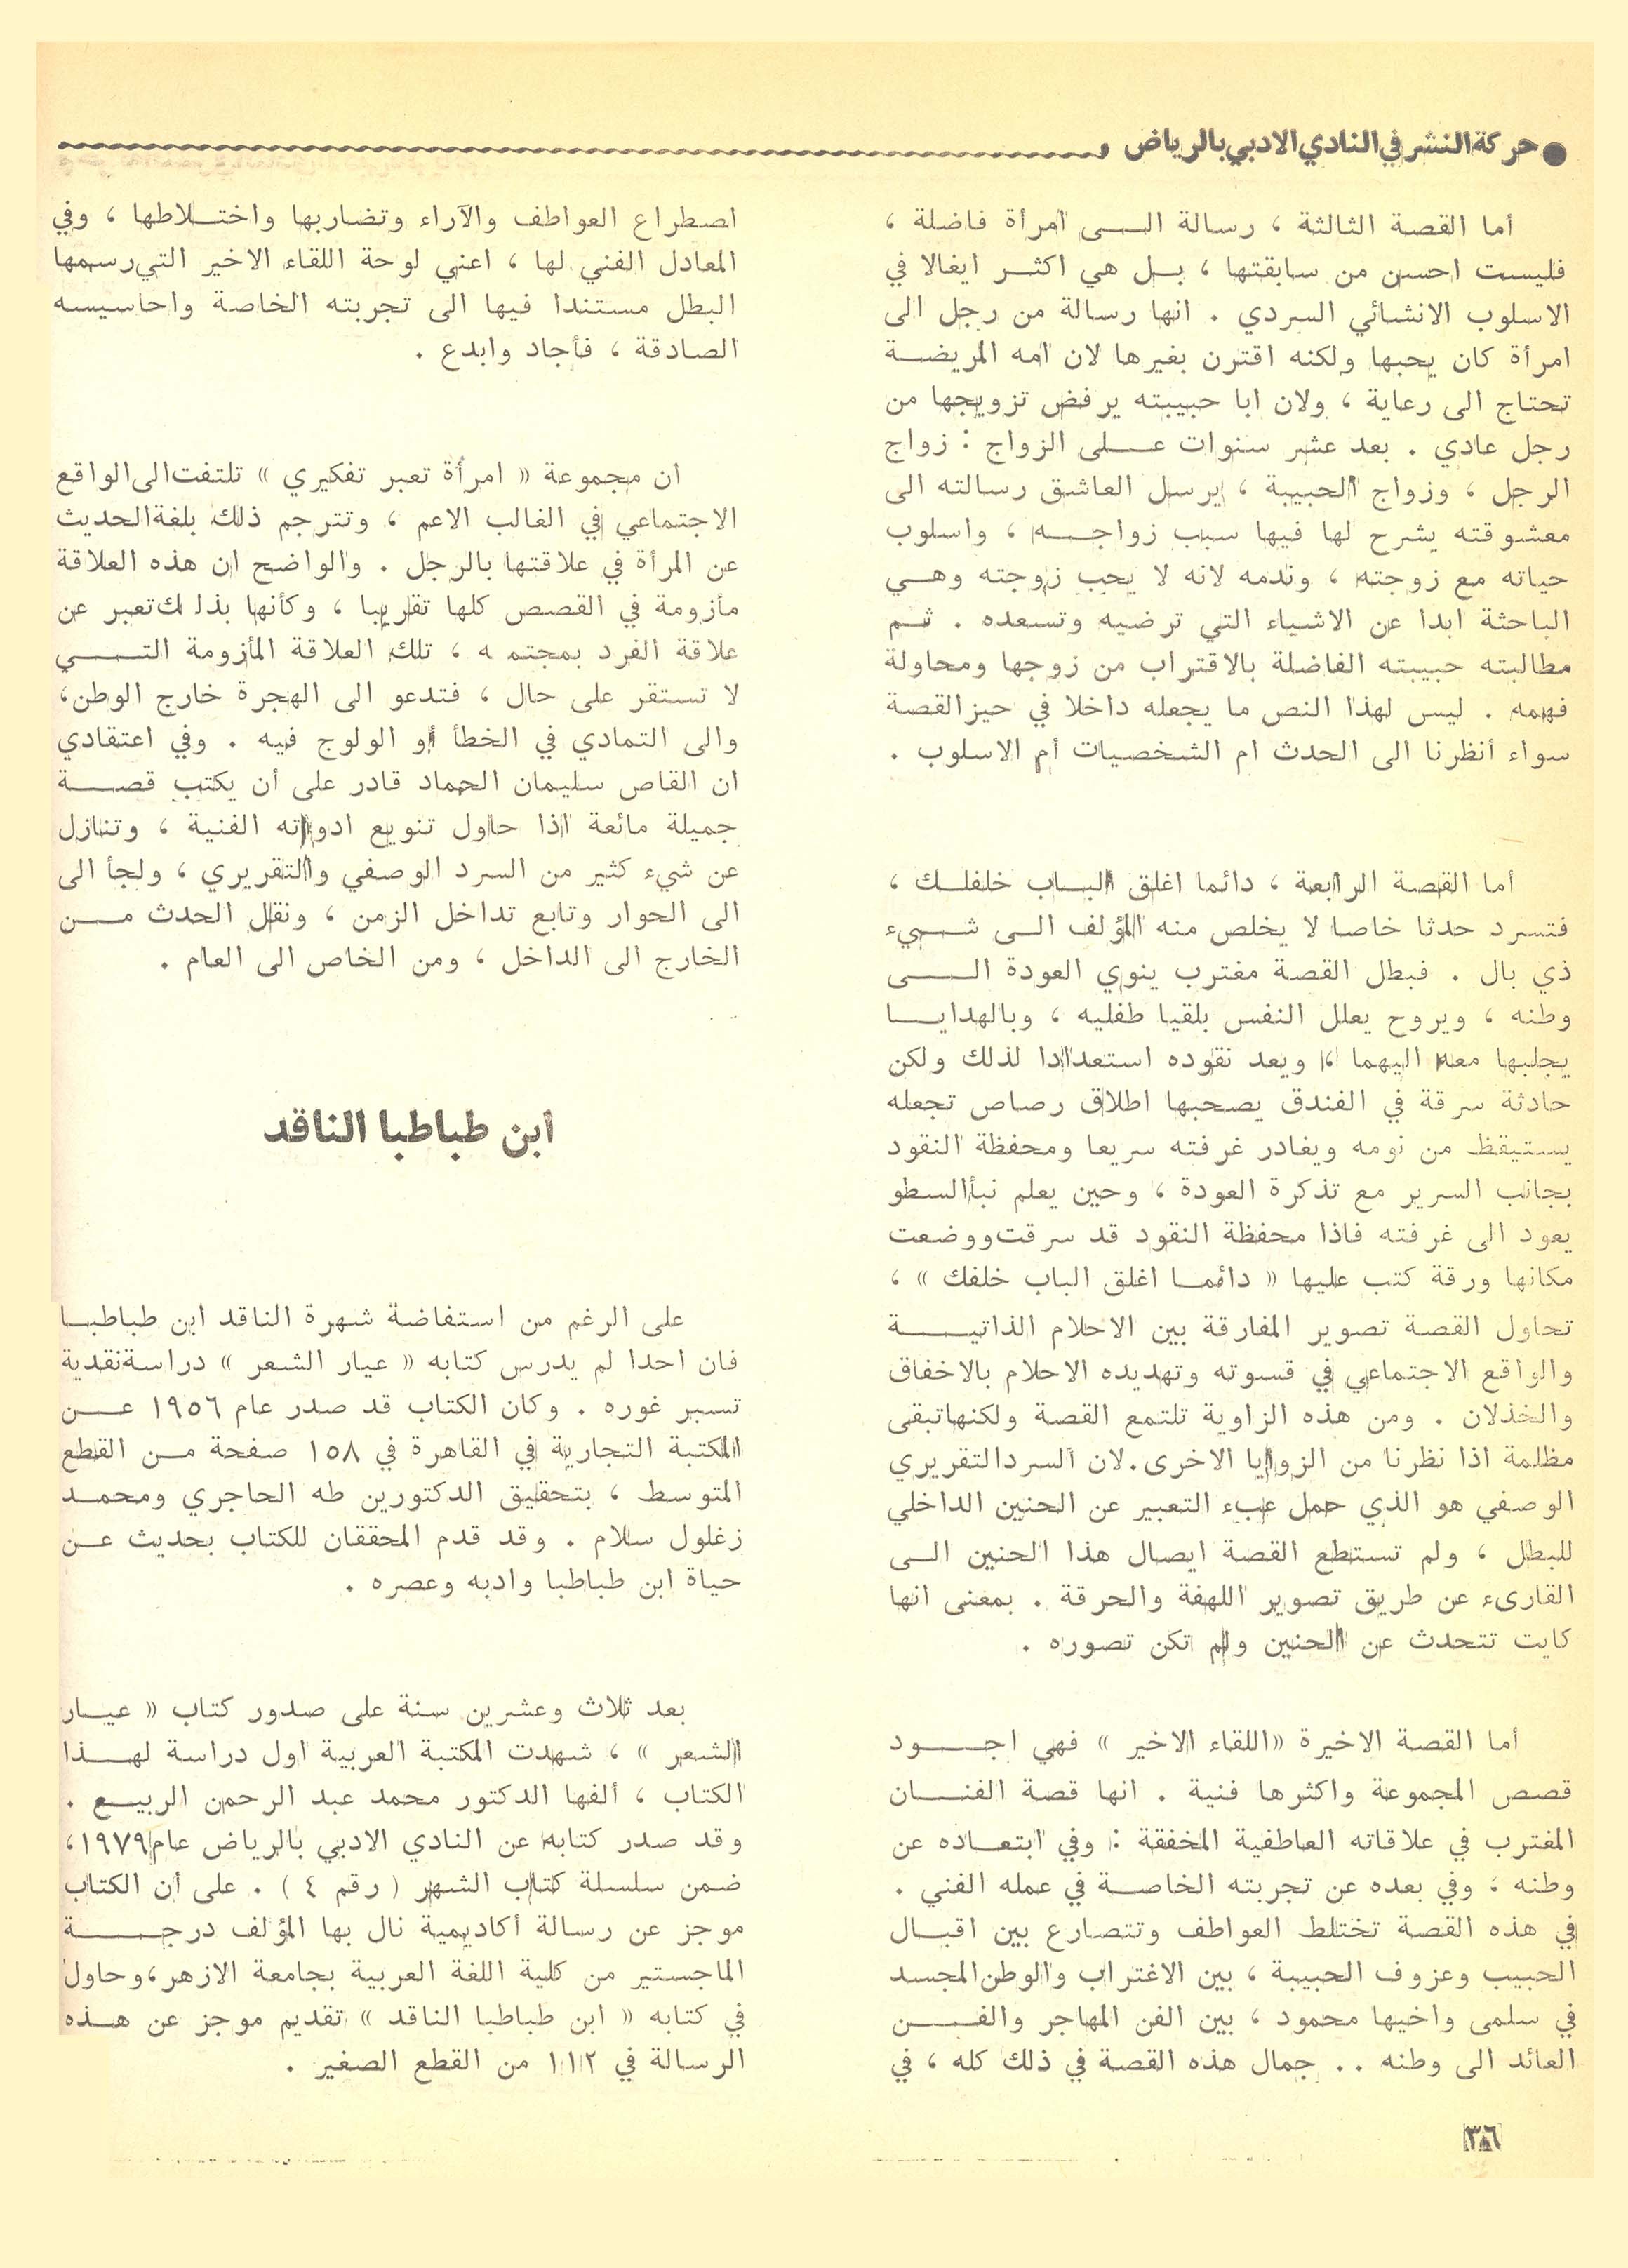 ● حركة النشر في النادي الادبي بالرياض
أما القصة الثالثة ، رسالة الى امرأة فاضلة ،
فليست احسن من سابقتها ، بل هي اكثر ايغالا في
الاسلوب الانشائي السردي . انها رسالة من رجل الى
امرأة كان يحبها ولكنه اقترن بغيرها لان امه المريضة
تحتاج الى رعاية ، ولان ابا حبيبته يرفض تزويجها من
رجل عادي . بعد عشر سنوات على الزواج : زواج
الرجل ، وزواج الحبيبة ، يرسل العاشق رسالته الى
معشوقته يشرح لها فيها سبب زواجه ، واسلوب
حياته مع زوجته ، وندمه لانه لا يحب زوجته وهي
الباحثة ابدا عن الاشياء التي ترضيه وتسعده . ثم
مطالبته حبيبته الفاضلة بالاقتراب من زوجها ومحاولة
فهمه . ليس لهذا النص ما يجعله داخلا في حيز القصة
سواء أنظرنا الى الحدث ام الشخصيات أم الاسلوب .
أما القصة الرابعة ، دائما اغلق الباب خلفلك ،
فتسرد حدثا خاصا لا يخلص منه المؤلف الى شيء
ذي بال . فبطل القصة مغترب ينوي العودة الى
وطنه ، ويروح يعلل النفس بلقيا طفليه ، وبالهدايا
يجلبها معه اليهما ، ويعد نقوده استعدادا لذلك ولكن
حادثة سرقة في الفندق يصحبها اطلاق رصاص تجعله
يستيقظ من نومه ويغادر غرفته سريعا ومحفظة النقود
بجانب السرير مع تذكرة العودة ، وحين يعلم نبأ السطو
يعود الى غرفته فاذا محفظة النقود قد سرقت ووضعت
مكانها ورقة كتب عليها « دائما اغلق الباب خلفك » ،
تحاول القصة تصوير المفارقة بين الاحلام الذاتية
والواقع الاجتماعي في قسوته وتهديده الاحلام بالاخفاق
والخذلان . ومن هذه الزاوية تلتمع القصة ولكنها تبقى
مظلمة اذا نظرنا من الزوايا الاخرى . لان السرد التقريري
الوصفي هو الذي حمل عبء التعبير عن الحنين الداخلي
للبطل ، ولم تستطع القصة ايصال هذا الحنين الى
القارىء عن طريق تصوير اللهفة والحرقة . بمعنى انها
كايت تتحدث عن الحنين ولم تكن تصوره .
أما القصة الاخيرة «اللقاء الاخير » فهي اجود
قصص المجموعة واكثرها فنية . انها قصة الفنان
المغترب في علاقاته العاطفية المخفقة : وفي ابتعاده عن
وطنه ، وفي بعده عن تجربته الخاصة في عمله الفني .
في هذه القصة تختلط العواطف وتتصارع بين اقبال
الحبيب وعزوف الحبيبة ، بين الاغتراب والوطن المجسد
في سلمى واخيها محمود ، بين الفن المهاجر والفن
العائد الى وطنه . . جمال هذه القصة في ذلك كله ، في
اصطراع العواطف والآراء وتضاربها واختلاطها ، وفي
المعادل الفني لها ، اعني لوحة اللقاء الاخير التي رسمها
البطل مستندا فيها الى تجربته الخاصة واحاسيسه
الصادقة ، فأجاد وابدع .
ان مجموعة « امرأة تعبر تفكيري » تلتفت الى الواقع
الاجتماعي في الغالب الاعم ، وتترجم ذلك بلغة الحديث
عن المرأة في علاقتها بالرجل . والواضح ان هذه العلاقة
مأزومة في القصص كلها تقريبا ، وكأنها بذلك تعبر عن
علاقة الفرد بمجتمعه ، تلك العلاقة المأزومة التي
لا تستقر على حال ، فتدعو الى الهجرة خارج الوطن،
والى التمادي في الخطأ أو الولوج فيه . وفي اعتقادي
ان القاص سليمان الحماد قادر على أن يكتب قصة
جميلة مائعة اذا حاول تنويع ادواته الفنية ، وتنازل
عن شيء كثير من السرد الوصفي والتقريري ، ولجأ الى
الى الحوار وتابع تداخل الزمن ، ونقل الحدث من
الخارج الى الداخل ، ومن الخاص الى العام .
ابن طباطبا الناقد
على الرغم من استفاضة شهرة الناقد ابن طباطبا
فان احدا لم يدرس كتابه « عيار الشعر » دراسة نقدية
تسبر غوره . وكان الكتاب قد صدر عام ١٩٥٦ عن
المكتبة التجارية في القاهرة في ١٥٨ صفحة من القطع
المتوسط ، بتحقيق الدكتورين طه الحاجري ومحمد
زغلول سلام . وقد قدم المحققان للكتاب بحديث عن
حياة ابن طباطبا وادبه وعصره .
بعد ثلاث وعشرين سنة على صدور كتاب « عيار
الشعر » ، شهدت المكتبة العربية اول دراسة لهذا
الكتاب ، ألفها الدكتور محمد عبد الرحمن الربيع .
وقد صدر كتابه عن النادي الادبي بالرياض عام ١٩٧٩،
ضمن سلسلة كتاب الشهر ( رقم ٤ ) . على أن الكتاب
موجز عن رسالة أكاديمية نال بها المؤلف درجة
الماجستير من كلية اللغة العربية بجامعة الازهر، وحاول
في كتابه « ابن طباطبا الناقد » تقديم موجز عن هذه
الرسالة في ١١٢ من القطع الصغير .
٣٦